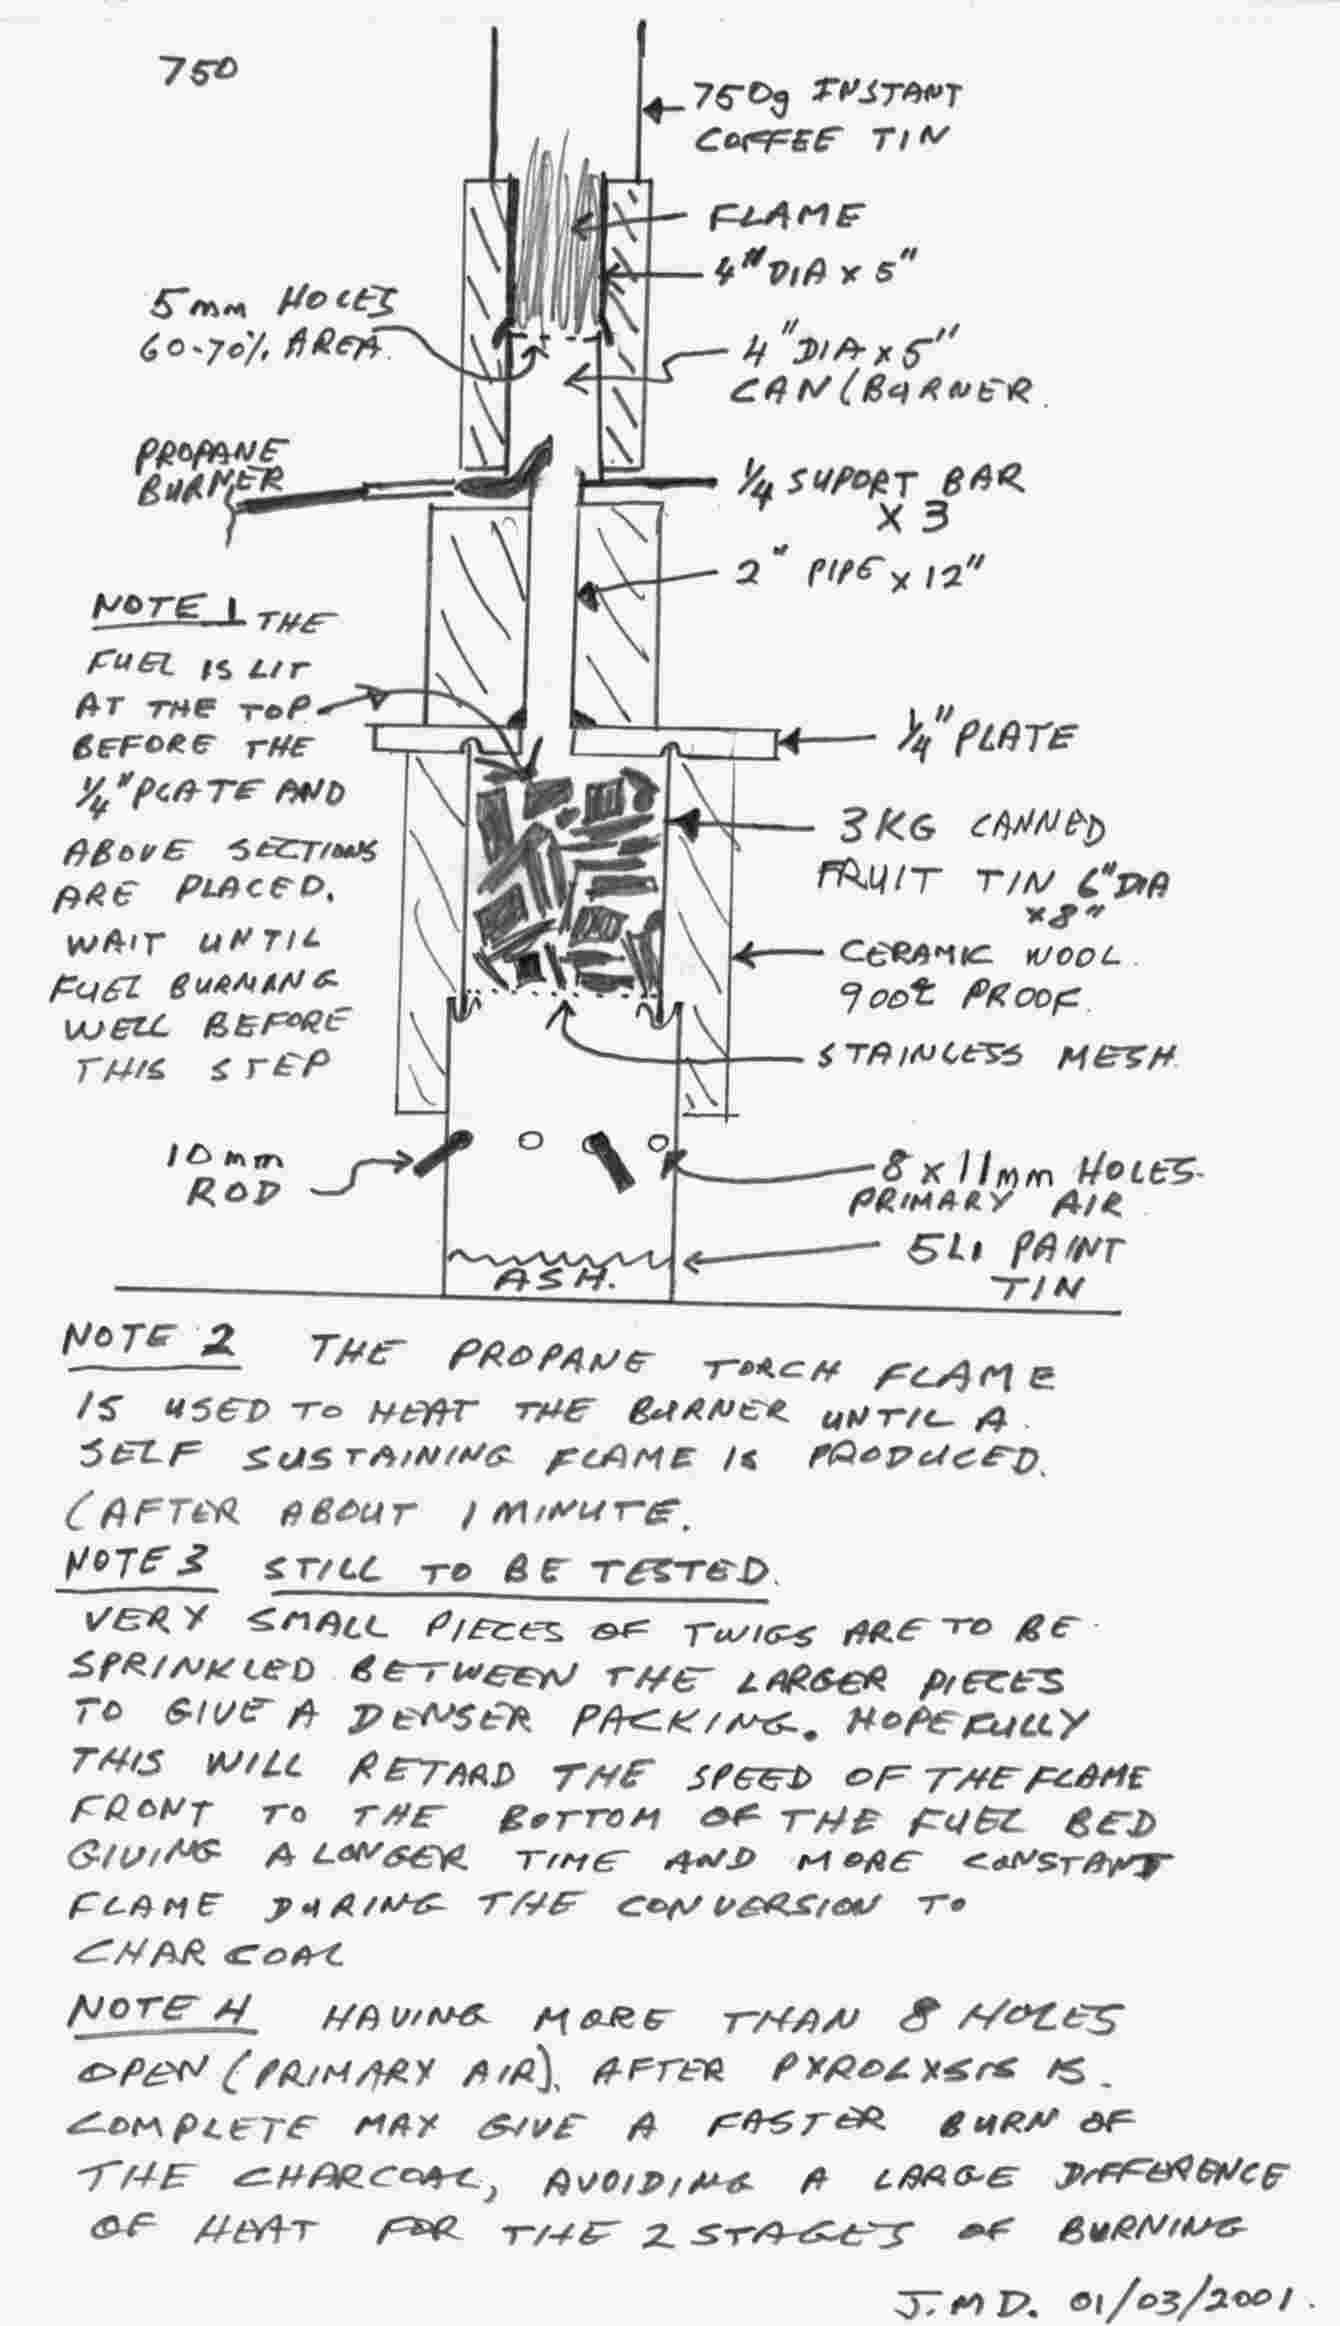 750
750g INSTANT
COFFEE TIN
FLAME
4" DIA x 5"
5mm HOLES
60-70% AREA.
4" DIA x 5"
CAN (BURNER.
PROPANE
BURNER
1/4 SUPORT BAR
X 3
2" PIPE x 12"
NOTE 1 THE
FUEL IS LIT
AT THE TOP
BEFORE THE
1/4" PLATE AND
ABOVE SECTIONS
ARE PLACED.
WAIT UNTIL
FUEL BURNANG
WELL BEFORE
THIS STEP
1/4" PLATE
3KG CANNED
FRUIT TIN 6" DIA
x 8"
CERAMIC WOOL.
900°C PROOF.
STAINLESS MESH.
10mm
ROD
8 x 11mm HOLES.
PRIMARY AIR
5LI PAINT
TIN
ASH.
NOTE 2 THE PROPANE TORCH FLAME
IS USED TO HEAT THE BURNER UNTIL A.
SELF SUSTAINING FLAME IS PRODUCED.
(AFTER ABOUT 1 MINUTE.
NOTE 3 STILL TO BE TESTED.
VERY SMALL PIECES OF TWIGS ARE TO BE
SPRINKLED BETWEEN THE LARGER PIECES
TO GIVE A DENSER PACKING. HOPEFULLY
THIS WILL RETARD THE SPEED OF THE FLAME
FRONT TO THE BOTTOM OF THE FUEL BED
GIVING A LONGER TIME AND MORE CONSTANT
FLAME DURING THE CONVERSION TO
CHARCOAL
NOTE 4 HAVING MORE THAN 8 HOLES
OPEN (PRIMARY AIR). AFTER PYROLYSIS IS.
COMPLETE MAY GIVE A FASTER BURN OF
THE CHARCOAL, AVOIDING A LARGE DIFFERENCE
OF HEAT FOR THE 2 STAGES OF BURNING
J.MD. 01/03/2001.